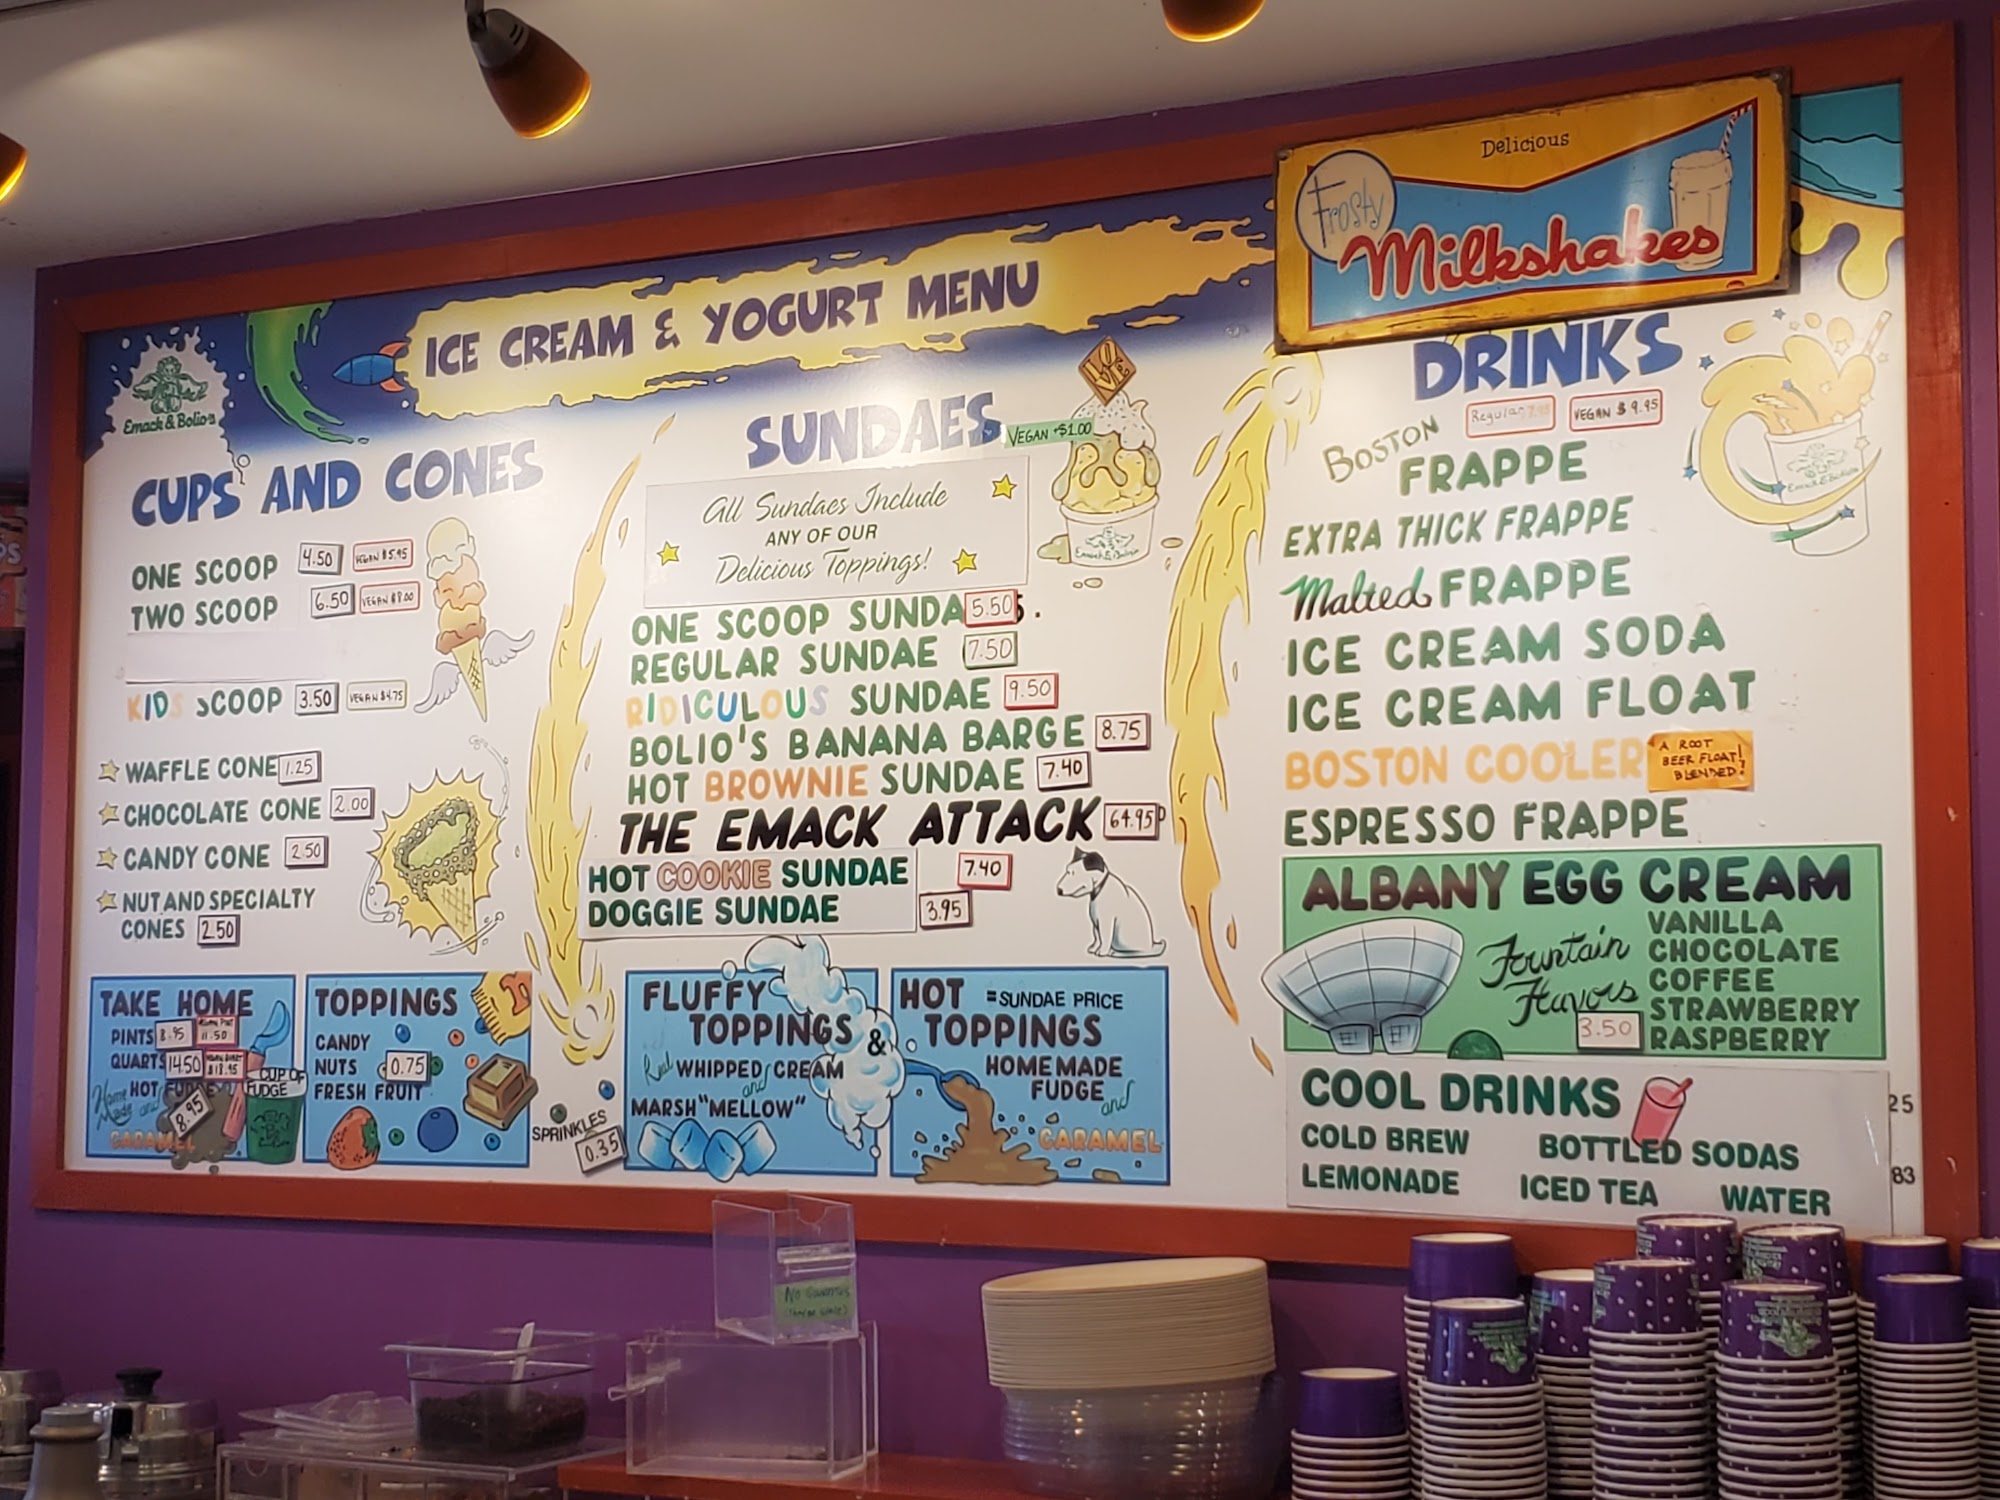 Delicious
Frosty
Milkshakes
ICE CREAM & YOGURT MENU
Emack & Bolio's
CUPS AND CONES
ONE SCOOP 4.50 VEGAN $5.95
TWO SCOOP 6.50 VEGAN $8.00
KIDS SCOOP 3.50 VEGAN $4.75
WAFFLE CONE 1.25
CHOCOLATE CONE 2.00
CANDY CONE 2.50
NUT AND SPECIALTY
CONES 2.50
TAKE HOME
PINTS 8.95 11.50
QUARTS 14.50 $18.95
Home Made HOT FUDGE
and
8.95
CARAMEL
CUP OF
FUDGE
TOPPINGS
CANDY
NUTS 0.75
FRESH FRUIT
SPRINKLES
0.35
SUNDAES VEGAN +$1.00
LOVE
All Sundaes Include
ANY OF OUR
Delicious Toppings!
Emack & Bolio's
ONE SCOOP SUNDA 5.50
REGULAR SUNDAE 7.50
RIDICULOUS SUNDAE 9.50
BOLIO'S BANANA BARGE 8.75
HOT BROWNIE SUNDAE 7.40
THE EMACK ATTACK 64.95
HOT COOKIE SUNDAE 7.40
DOGGIE SUNDAE 3.95
FLUFFY
TOPPINGS &
Real WHIPPED CREAM
and
MARSH"MELLOW"
HOT =SUNDAE PRICE
TOPPINGS
HOMEMADE
FUDGE
and
CARAMEL
DRINKS
Regular 7.95 VEGAN $9.95
BOSTON
FRAPPE
EXTRA THICK FRAPPE
Malted FRAPPE
ICE CREAM SODA
ICE CREAM FLOAT
BOSTON COOLER
A ROOT
BEER FLOAT!
BLENDED!
ESPRESSO FRAPPE
Emack & Bolio's
ALBANY EGG CREAM
Fountain
Flavors
3.50
VANILLA
CHOCOLATE
COFFEE
STRAWBERRY
RASPBERRY
COOL DRINKS
COLD BREW BOTTLED SODAS
LEMONADE ICED TEA WATER
25
83